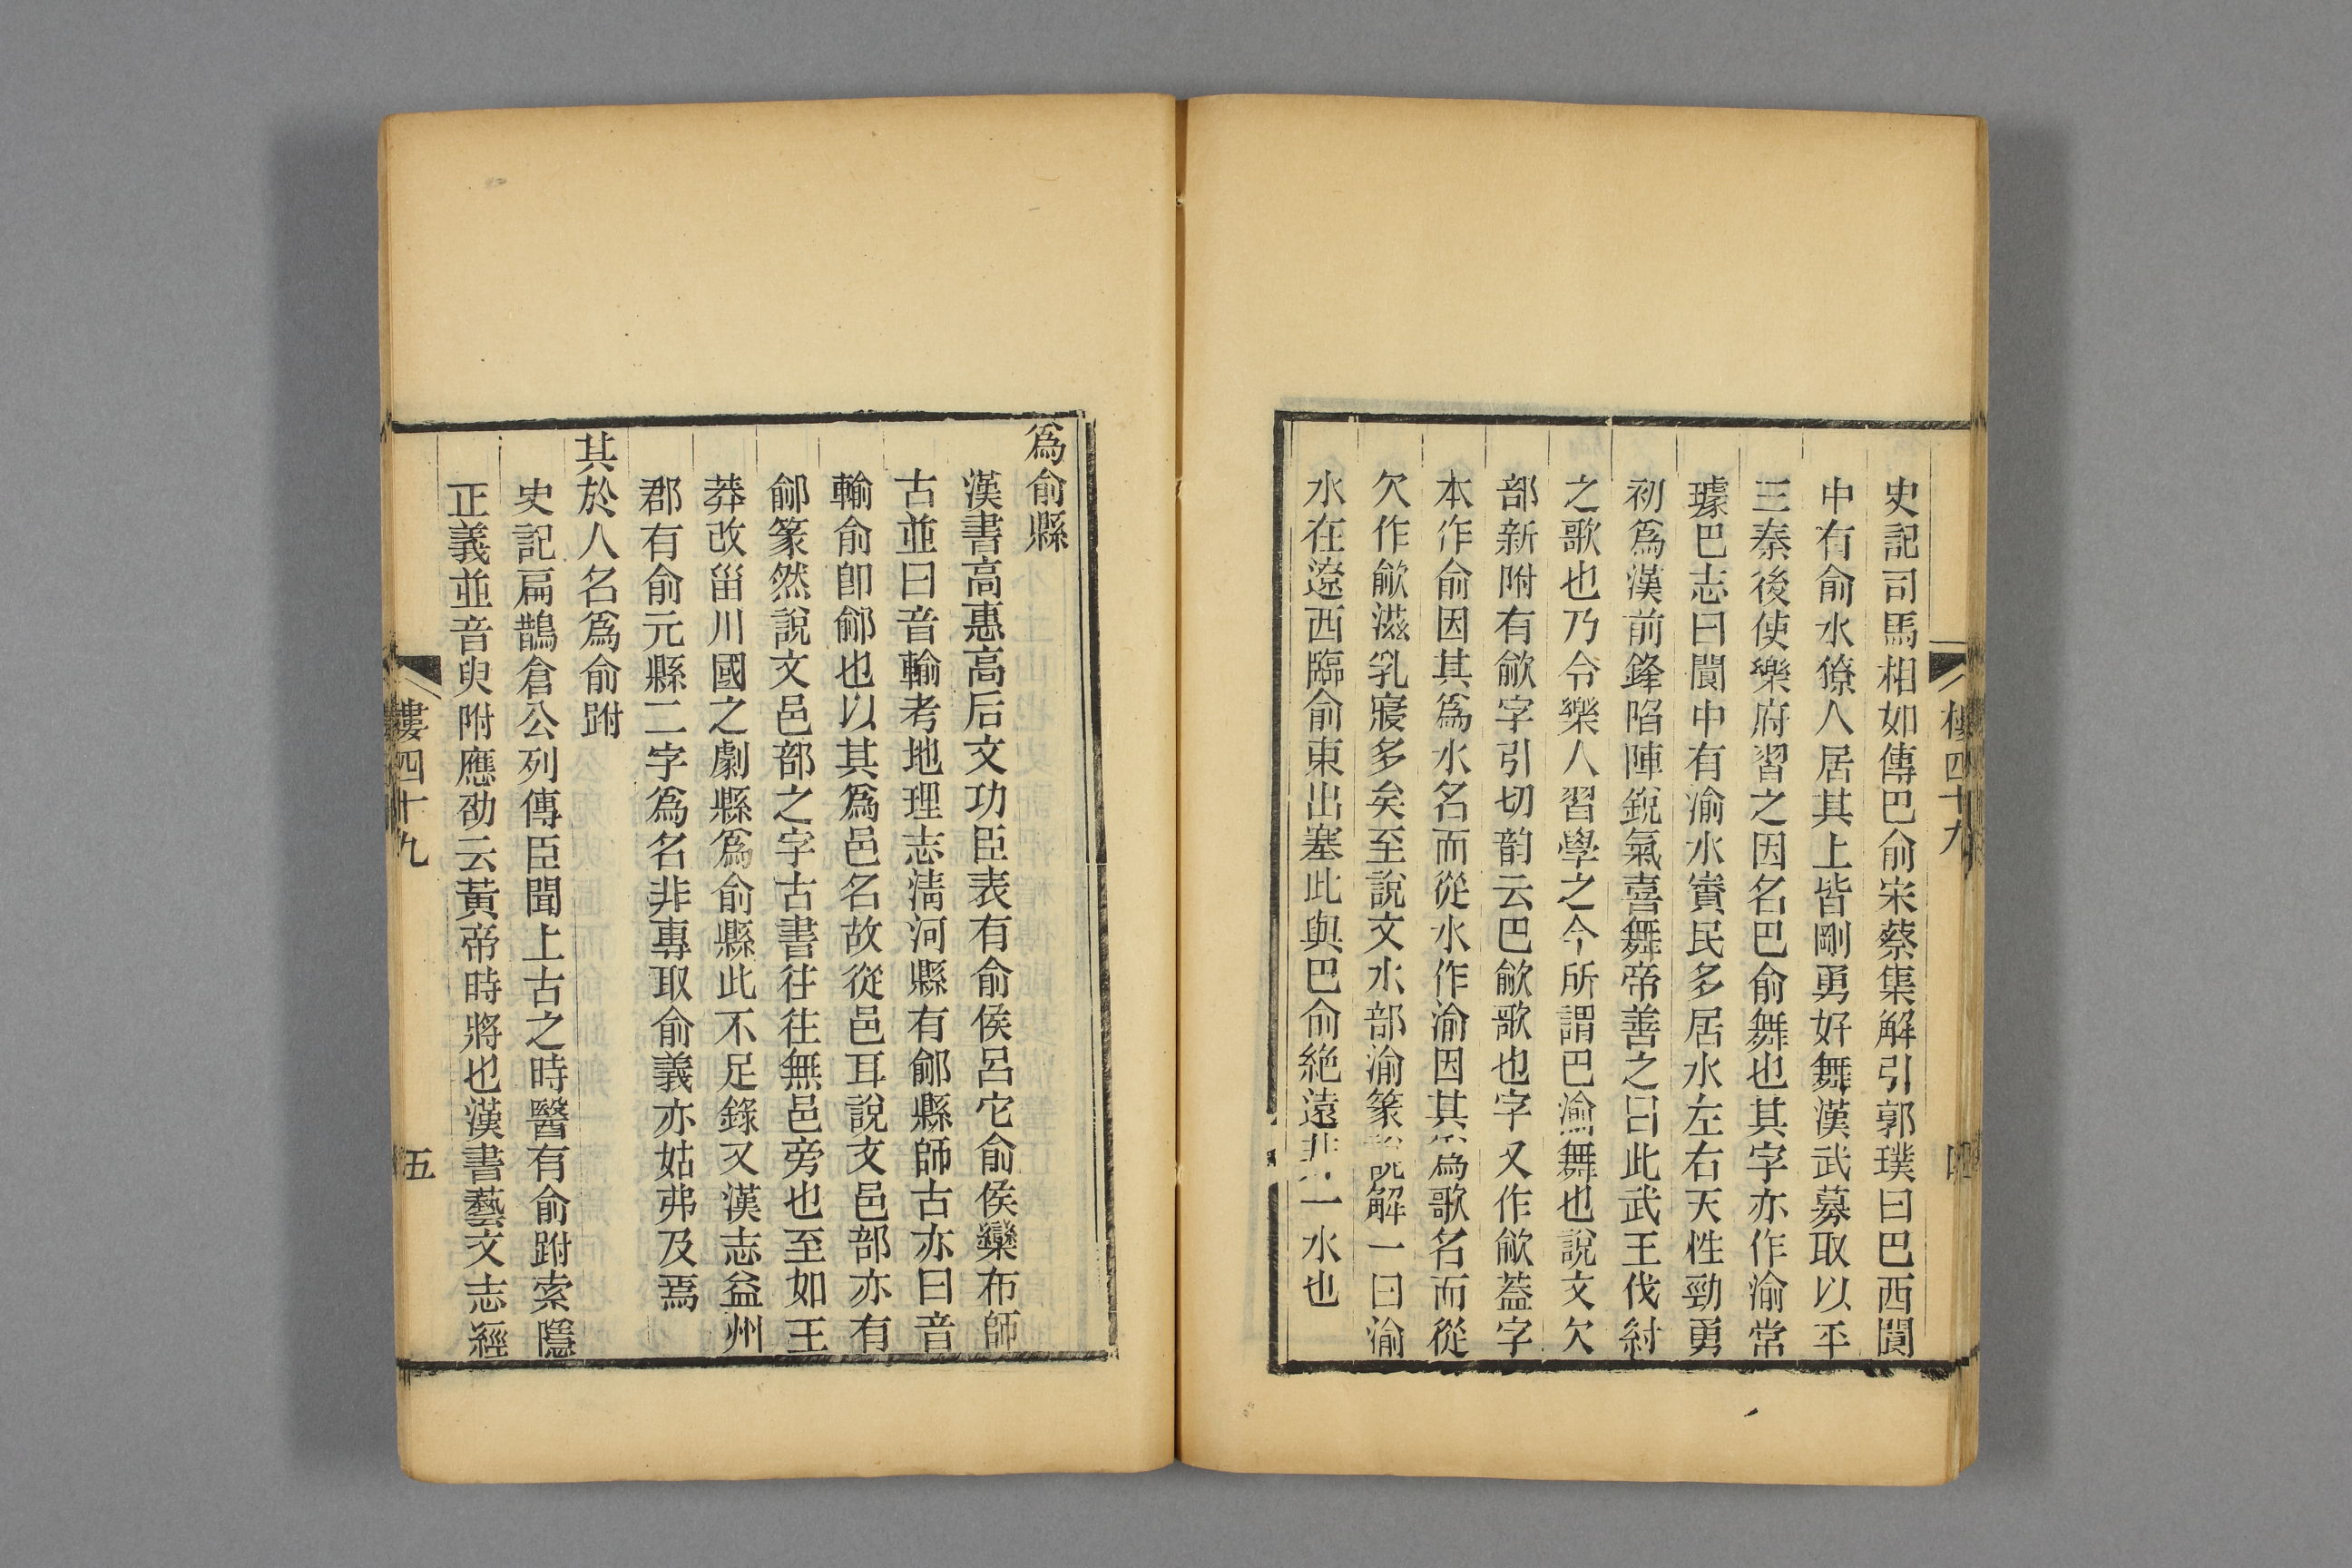 史記司馬相如傳巴俞宋蔡集解引郭璞曰巴西閬
中有俞水獠人居其上皆剛勇好舞漢武募取以平
三秦後使樂府習之因名巴俞舞也其字亦作渝常
璩巴志曰閬中有渝水賨民多居水左右天性勁勇
初爲漢前鋒陷陣銳氣喜舞帝善之曰此武王伐紂
之歌也乃令樂人習學之今所謂巴渝舞也說文欠
部新附有歈字引切韵云巴歈歌也字又作歈葢字
本作俞因其爲水名而從水作渝因其爲歌名而從
欠作歈滋乳寖多矣至說文水部渝篆說解一曰渝
水在遼西臨俞東出塞此與巴俞絶遠非一水也
四十九
爲俞縣
漢書高惠高后文功臣表有俞侯呂它俞侯欒布師
古並曰音輸考地理志淸河縣有鄃縣師古亦曰音
輸俞卽鄃也以其爲邑名故從邑耳說文邑部亦有
鄃篆然說文邑部之字古書往往無邑旁也至如王
莽改甾川國之劇縣爲俞縣此不足錄又漢志益州
郡有俞元縣二字爲名非專取俞義亦姑弗及焉
其於人名爲俞跗
史記扁鵲倉公列傳臣聞上古之時醫有俞跗索隱
正義並音臾附應劭云黃帝時將也漢書藝文志經
樓四十九
五